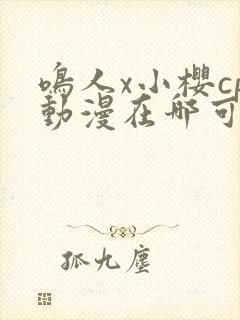 鳴人x小櫻cp
動漫在哪可
孤九塵